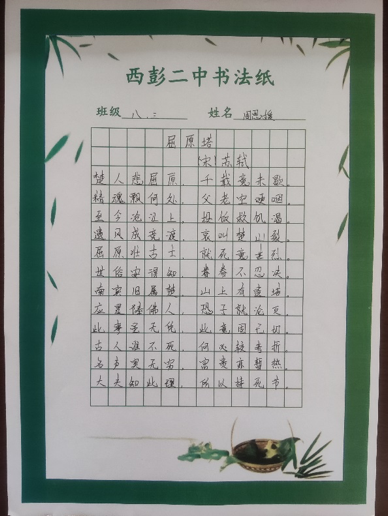 西彭二中书法纸
班级 八.二 姓名 周思媛
屈原塔
宋 苏轼
楚人悲屈原，千载意未歇。
精魂飘何处，父老空哽咽。
至今沧江上，投饭救饥渴。
遗风成竞渡，哀叫楚山裂。
屈原古壮士，就死意甚烈。
世俗安得知，眷眷不忍决。
南宾旧属楚，山上有遗塔。
应是佛人，恐子就沦灭。
此事无凭，此意固已切。
古人谁不死，何必较考折。
名声无穷，富贵亦暂热。
大夫知此理，所以持死节。